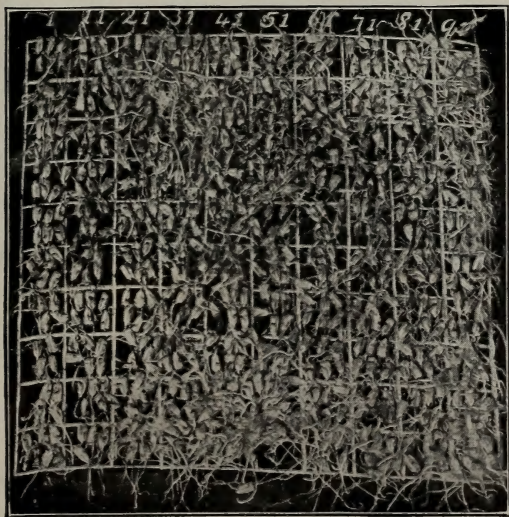 1 11 21 31 41 51 61 71 81 91